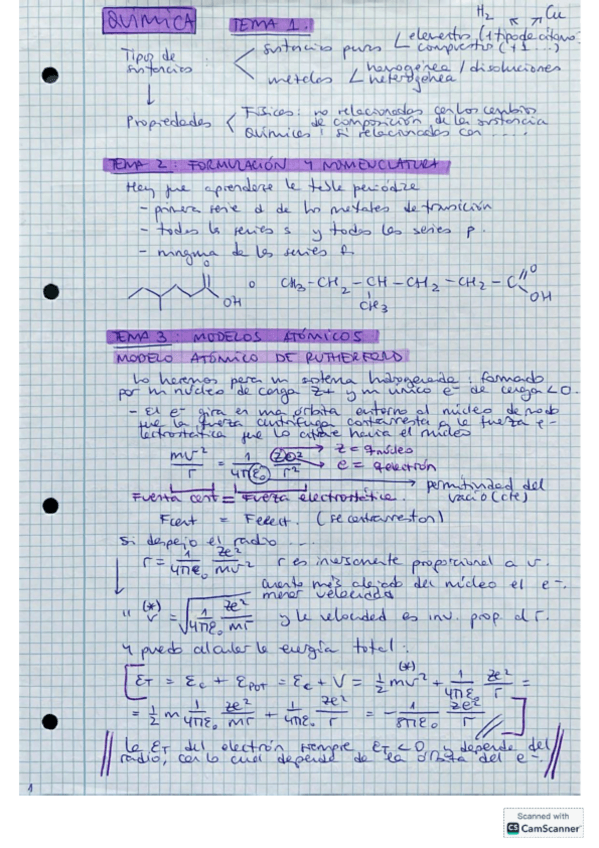 H2 Cu
QUIMICA TEMA 1.
Tipos de sustancias
sustancias puras elementos (1 tipo de átomo
compuestos (+1 ...)
mezclas homogénea / disoluciones
heterogénea
Propiedades
Físicas: no relacionadas con los cambios
de composición de la sustancia
Químicas: si relacionadas con ....
TEMA 2: FORMULACIÓN Y NOMENCLATURA
Hay que aprenderse la tabla periódica
- primera serie d de los metales de transición
- todas la series s y todas las series p.
- ninguna de las series f
O
OH
o CH3-CH2-CH-CH2-CH2-C O
OH
CH3
TEMA 3: MODELOS ATÓMICOS
MODELO ATÓMICO DE RUTHERFORD
Lo haremos para un sistema hidrogenoide: formado
por un núcleo de carga Z+ y un único e- de carga <0.
- El e- gira en una órbita entorno al núcleo de modo
que la fuerza centrífuga contrarresta a la fuerza e-
lectrostática que lo atrae hacia el núcleo
mv²/r = 1/4πε0 Ze²/r²
Z = q núcleo
e = q electrón
permitividad del
vacío (cte)
Fuerza cent = Fuerza electrostática.
Fcent = Felect. (se contrarrestan)
Si despejo el radio ...
r = 1/4πε0 Ze²/mv² r es inversamente proporcional a v.
cuanto más alejado del núcleo el e-.
menor velocidad
" (*) v = √1/4πε0 Ze²/mr y la velocidad es inv. prop. al r.
Y puedo calcular la energía total:
(*)
ET = Ec + EPOT = Ec + V = 1/2 mv² + 1/4πε0 Ze²/r =
= 1/2 m 1/4πε0 Ze²/mr + 1/4πε0 Ze²/r = - 1/8πε0 Ze²/r
la ET del electrón siempre ET<0 y depende del
radio, con lo cual depende de la órbita del e-.
1
Scanned with
CS CamScanner